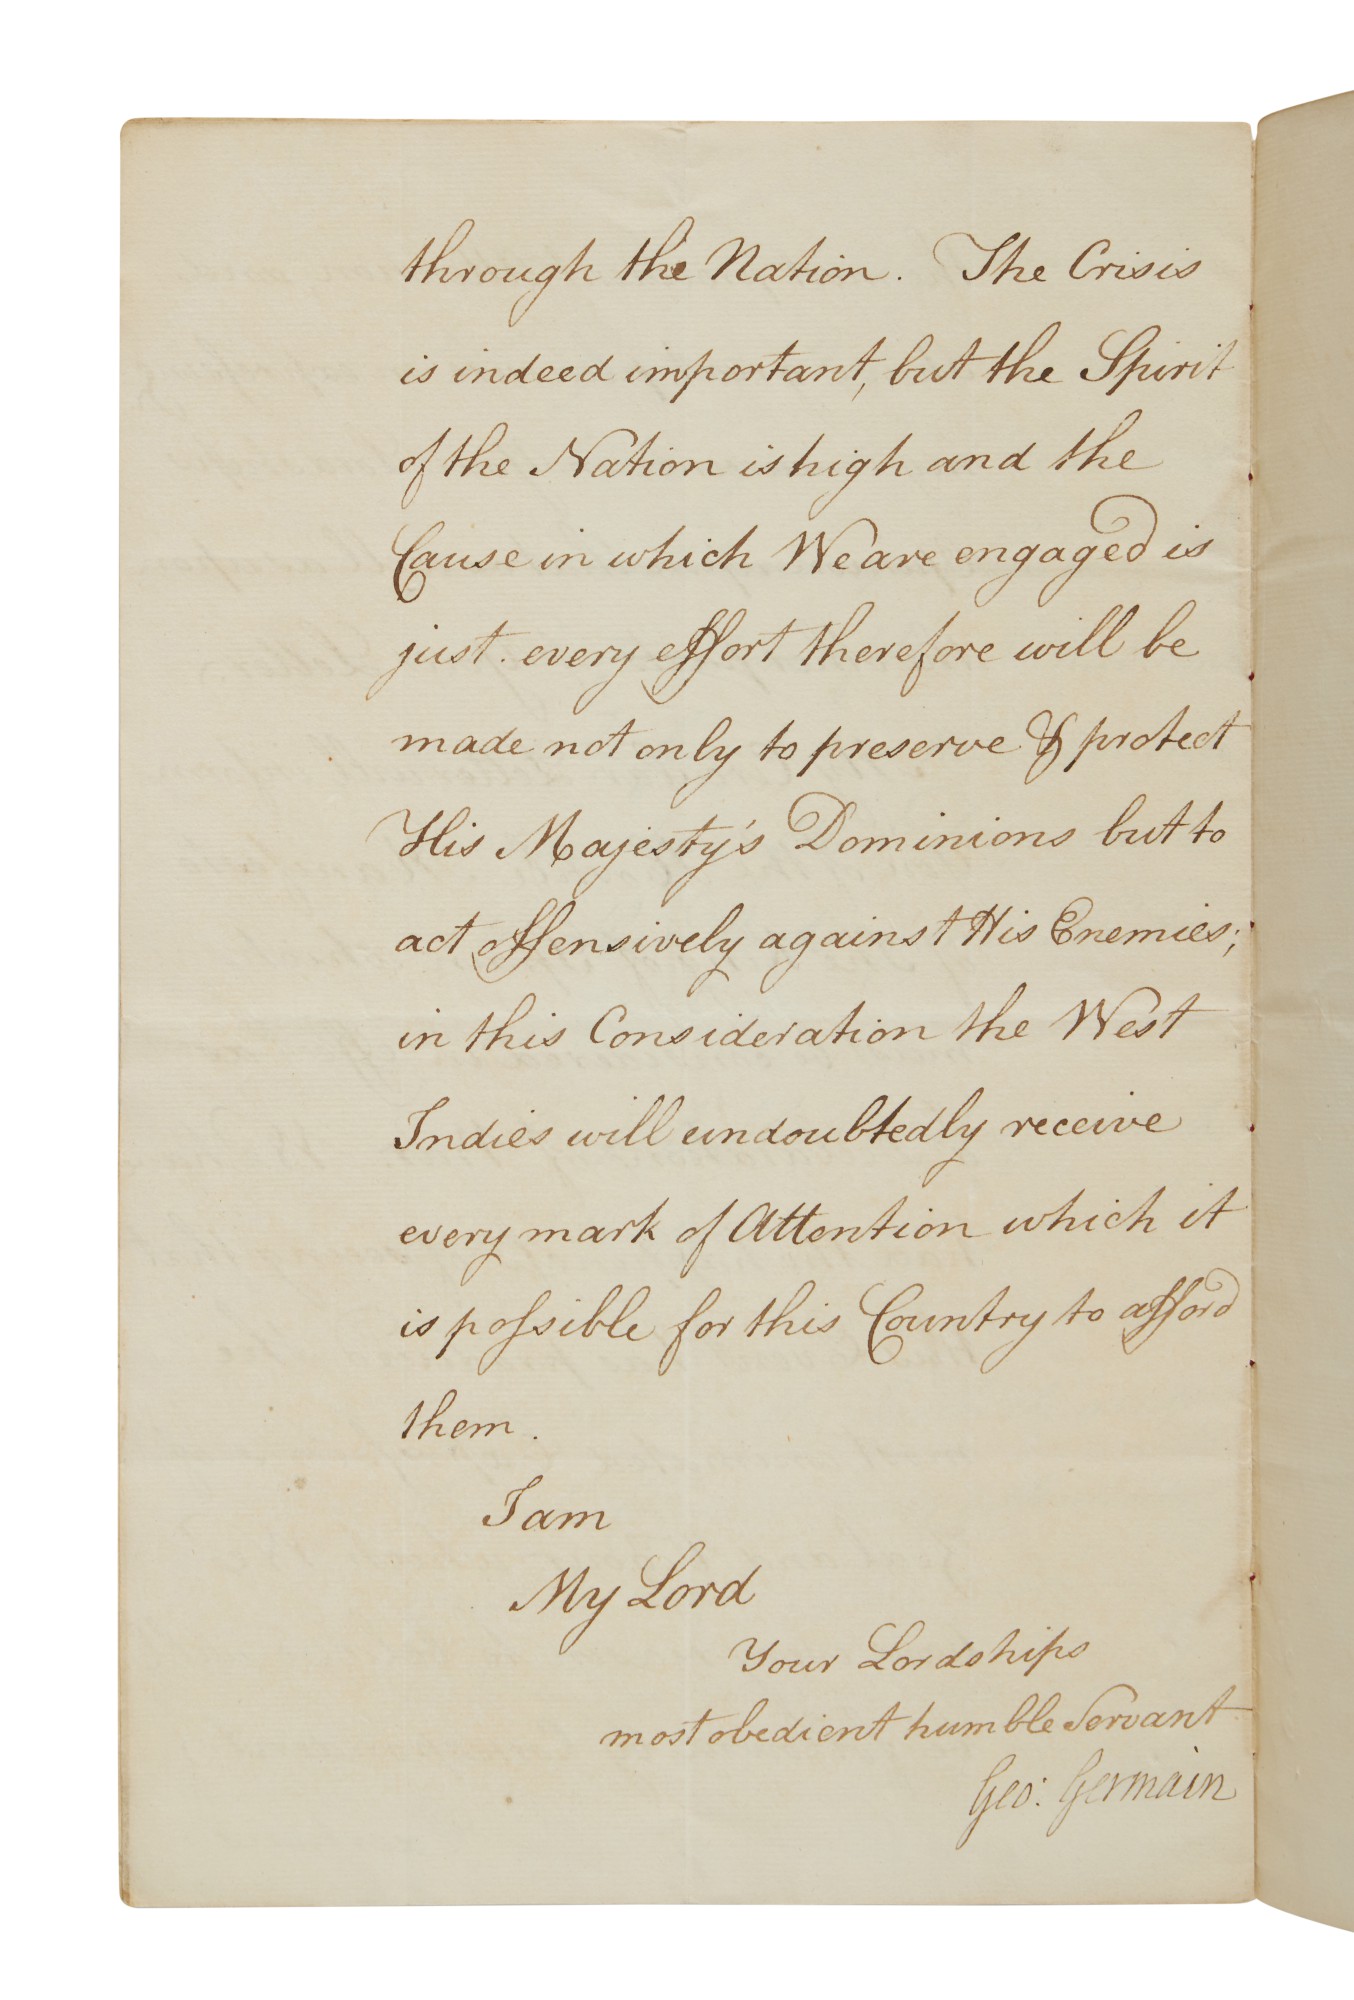 through the Nation. The Crisis
is indeed important, but the Spirit
of the Nation is high and the
Cause in which We are engaged is
just. every effort therefore will be
made not only to preserve & protect
His Majesty's Dominions but to
act offensively against His Enemies;
in this Consideration the West
Indies will undoubtedly receive
every mark of Attention which it
is poſsible for this Country to afford
them.
I am
My Lord
Your Lordships
most obedient humble Servant
Geo: Germain